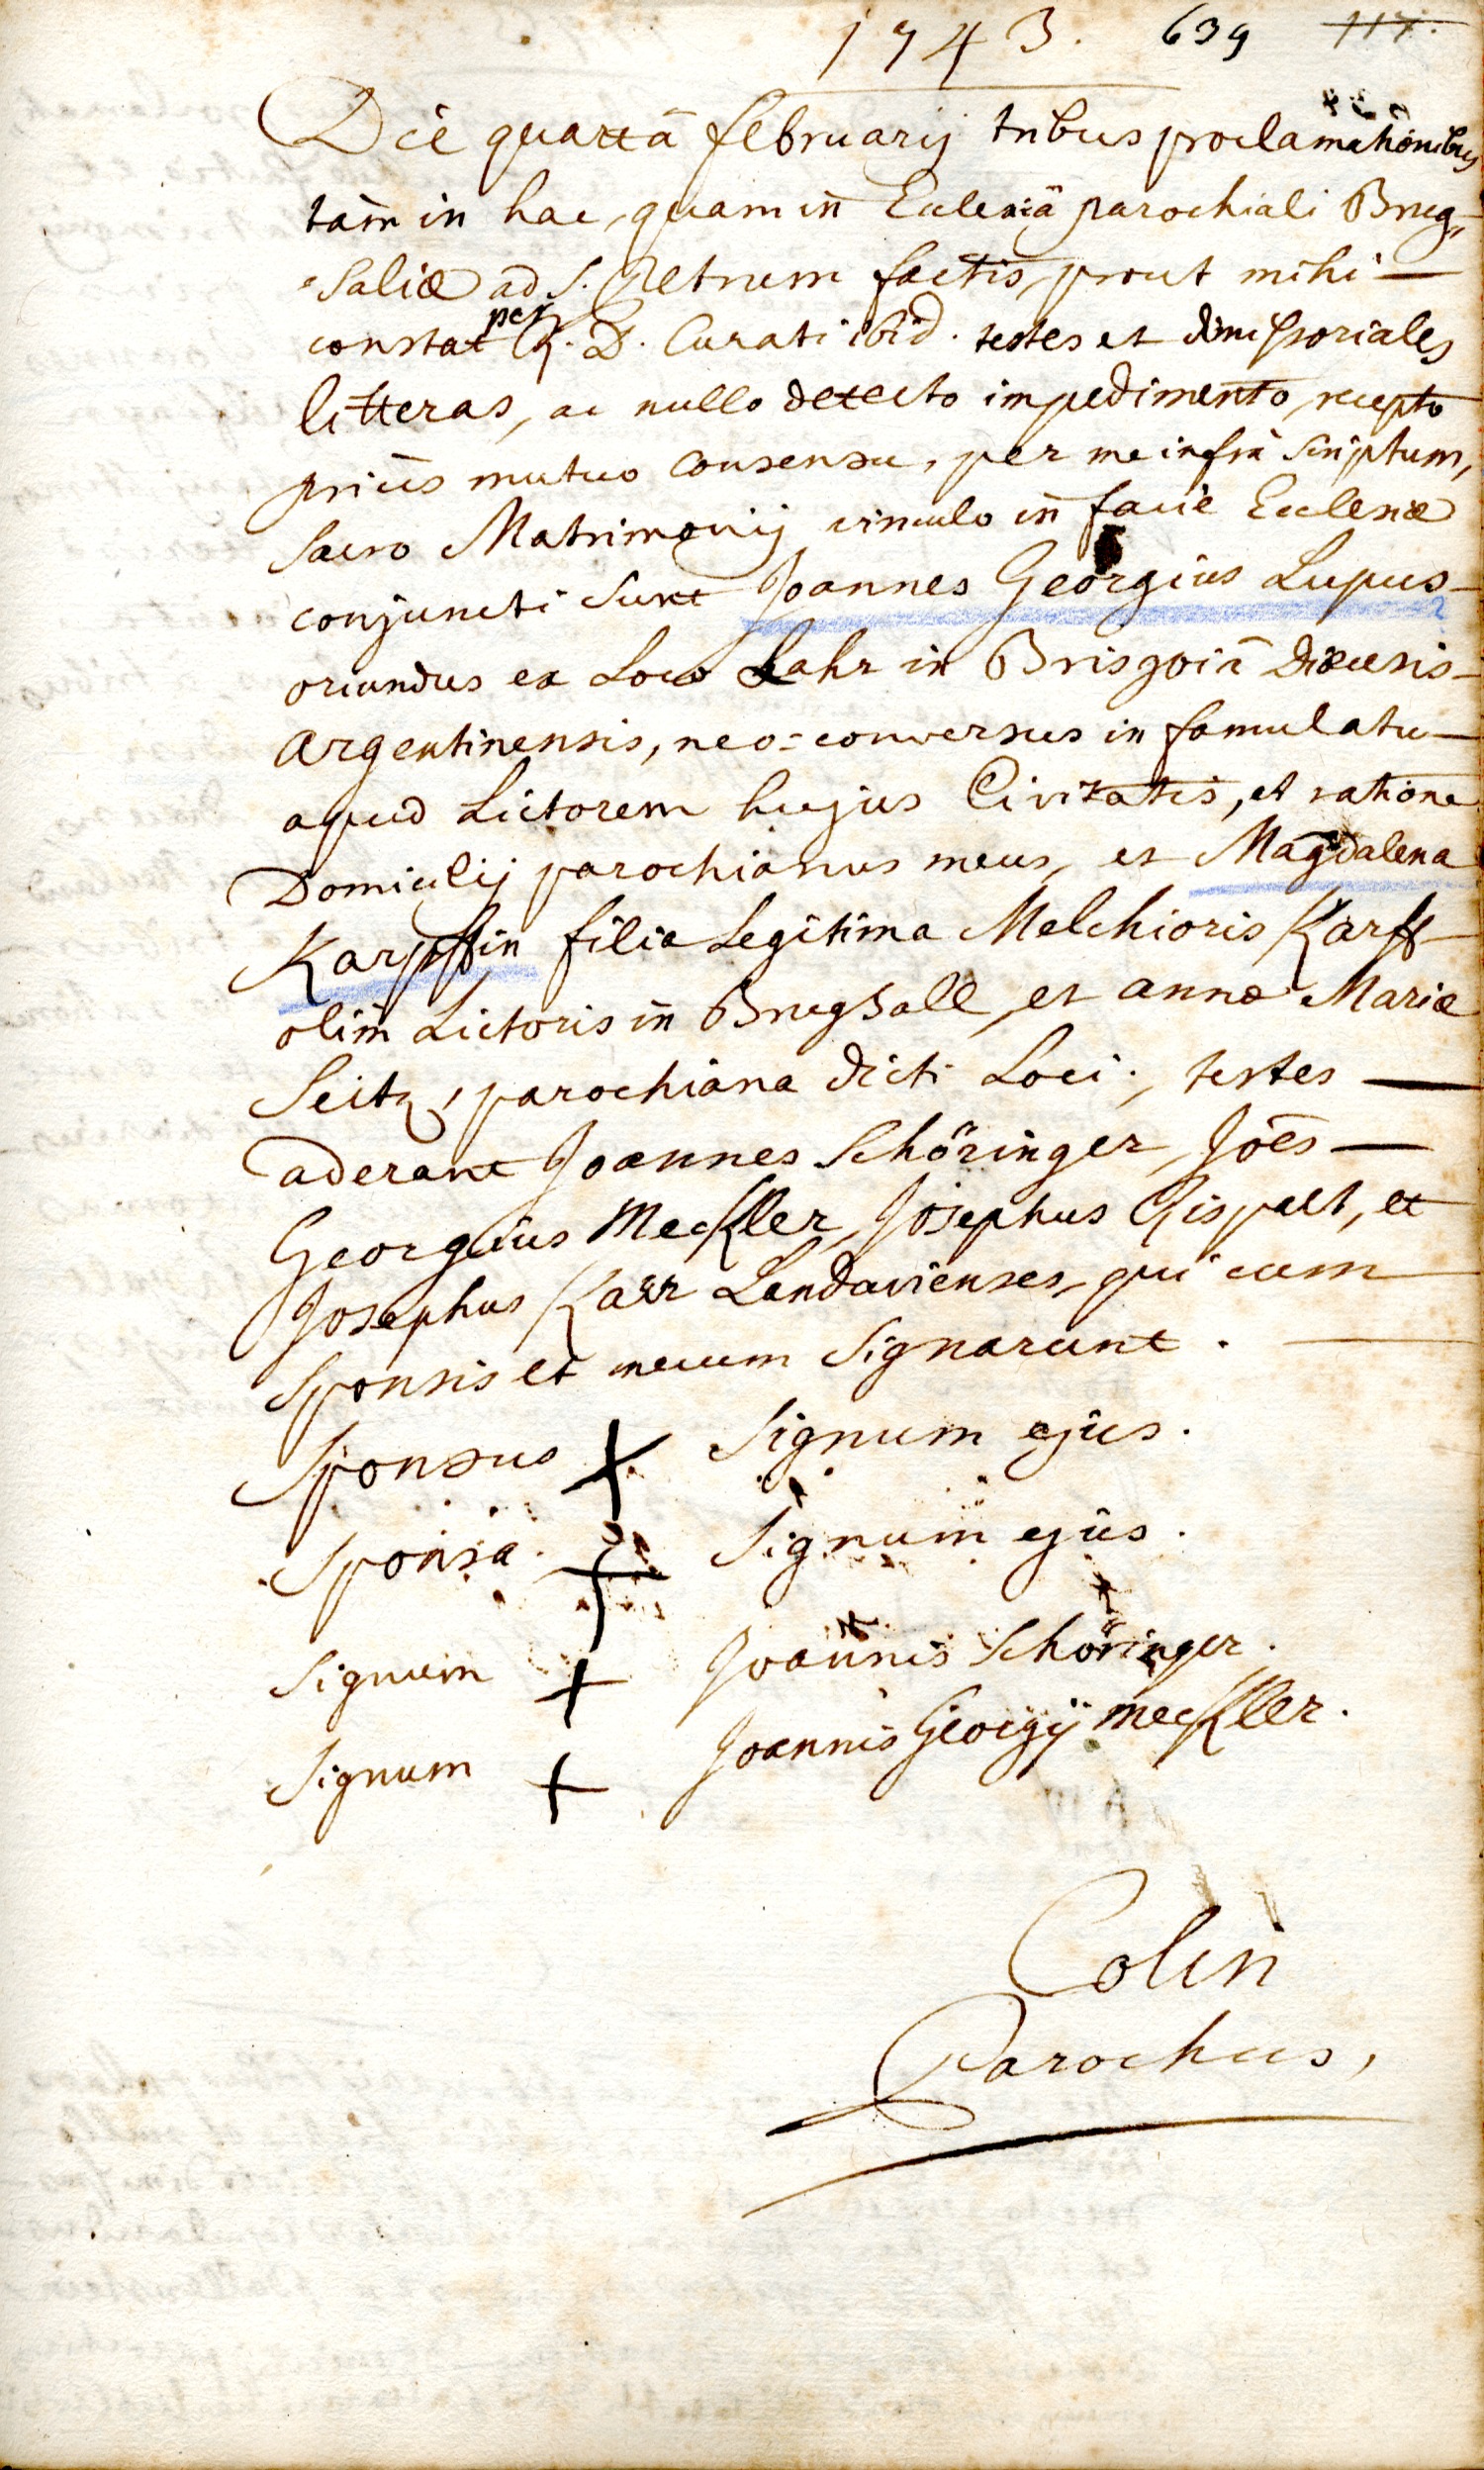 1743. 639 117.
Die quartâ februarij tribus proclamationibus
tàm in hac, quam in Ecclesiâ parochiali Brug-
saliæ ad S. Petrum factis, prout mihi
constat per R. D. Curati ibid. testes et dimissoriales
litteras, ac nullo detecto impedimento, recepto
priùs mutuo consensu, per me infrà scriptum,
sacro Matrimonij vinculo in facie Ecclesiæ
conjuncti sunt Joannes Georgius Lupus
oriundus ex Loco Lahr in Brisgoiâ Diœcesis
argentinensis, neo-conversus in famulatu
apud Lictorem hujus Civitatis, et ratione
Domicilij parochianus meus, et Magdalena
Karpffin filia Legitima Melchioris Karff
olim Lictoris in Brugsall, et annæ Mariæ
Seitz, parochiana dicti Loci; testes
aderant Joannes Schöringer, Jōes
Georgius Meckler, Josephus Rispelt, et
Josephus Karr Landavienses, qui cum
Sponsis et mecum Signarunt.
Sponsus + Signum ejus.
Sponsa + Signum ejus.
Signum + Joannis Schöringer.
Signum + Joannis Georgij Meckler.
Colin
Parochus,